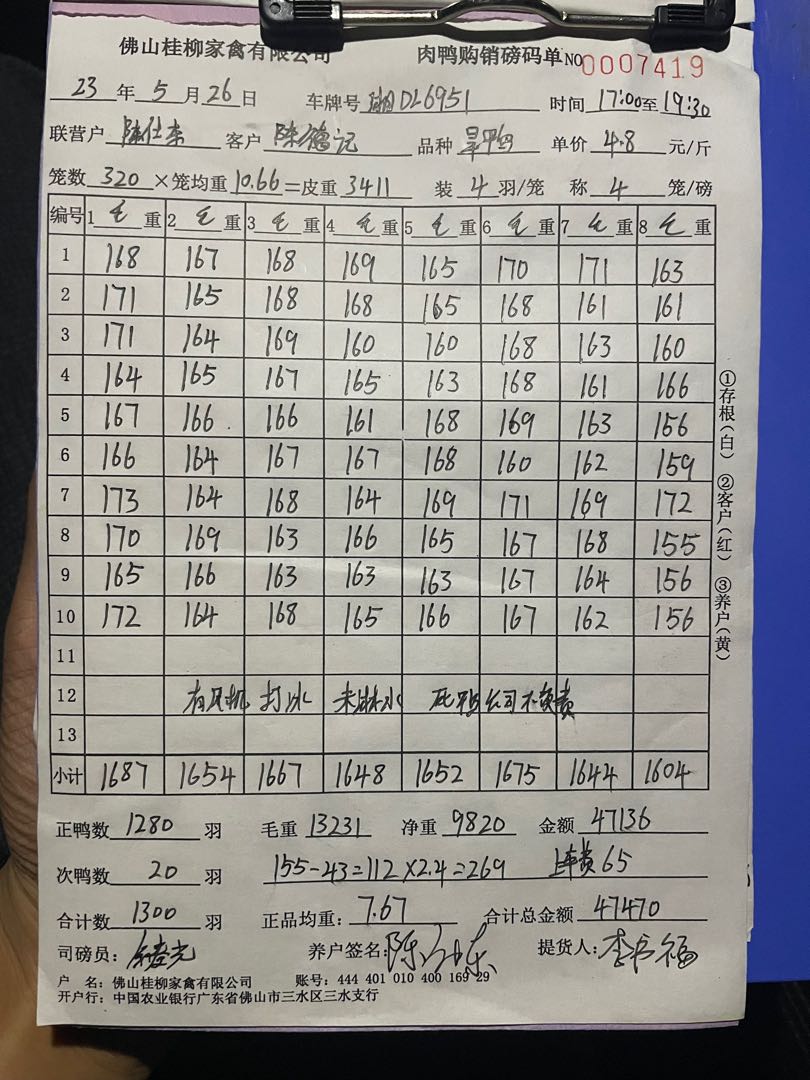 佛山桂柳家禽有限公司 肉鸭购销磅码单 NO 0007419
23 年 5 月 26 日 车牌号 湘DL6951 时间 17:00 至 19:30
联营户 陈仕东 客户 陈德记 品种 旱鸭 单价 4.8 元/斤
笼数 320 ×笼均重 10.66 =皮重 3411 装 4 羽/笼 称 4 笼/磅
编号 1 毛 重 2 毛 重 3 毛 重 4 毛 重 5 毛 重 6 毛 重 7 毛 重 8 毛 重
1 168 167 168 169 165 170 171 163
2 171 165 168 168 165 168 161 161
3 171 164 169 160 160 168 163 160
4 164 165 167 165 163 168 161 166
5 167 166 166 161 168 169 163 156
6 166 164 167 167 168 160 162 159
7 173 164 168 164 169 171 169 172
8 170 169 163 166 165 167 168 155
9 165 166 163 163 163 167 164 156
10 172 164 168 165 166 167 162 156
11
12 有风机 打冰 未淋水 死鸭公司不负责
13
小计 1687 1654 1667 1648 1652 1675 1644 1604
正鸭数 1280 羽 毛重 13231 净重 9820 金额 47136
次鸭数 20 羽 155-43=112×2.4=269 上车费65
合计数 1300 羽 正品均重: 7.67 合计总金额 47470
司磅员: 养户签名: 陈仕东 提货人:
户 名: 佛山桂柳家禽有限公司 账号: 444 401 010 400 169 29
开户行: 中国农业银行广东省佛山市三水区三水支行
①存根(白) ②客户(红) ③养户(黄)